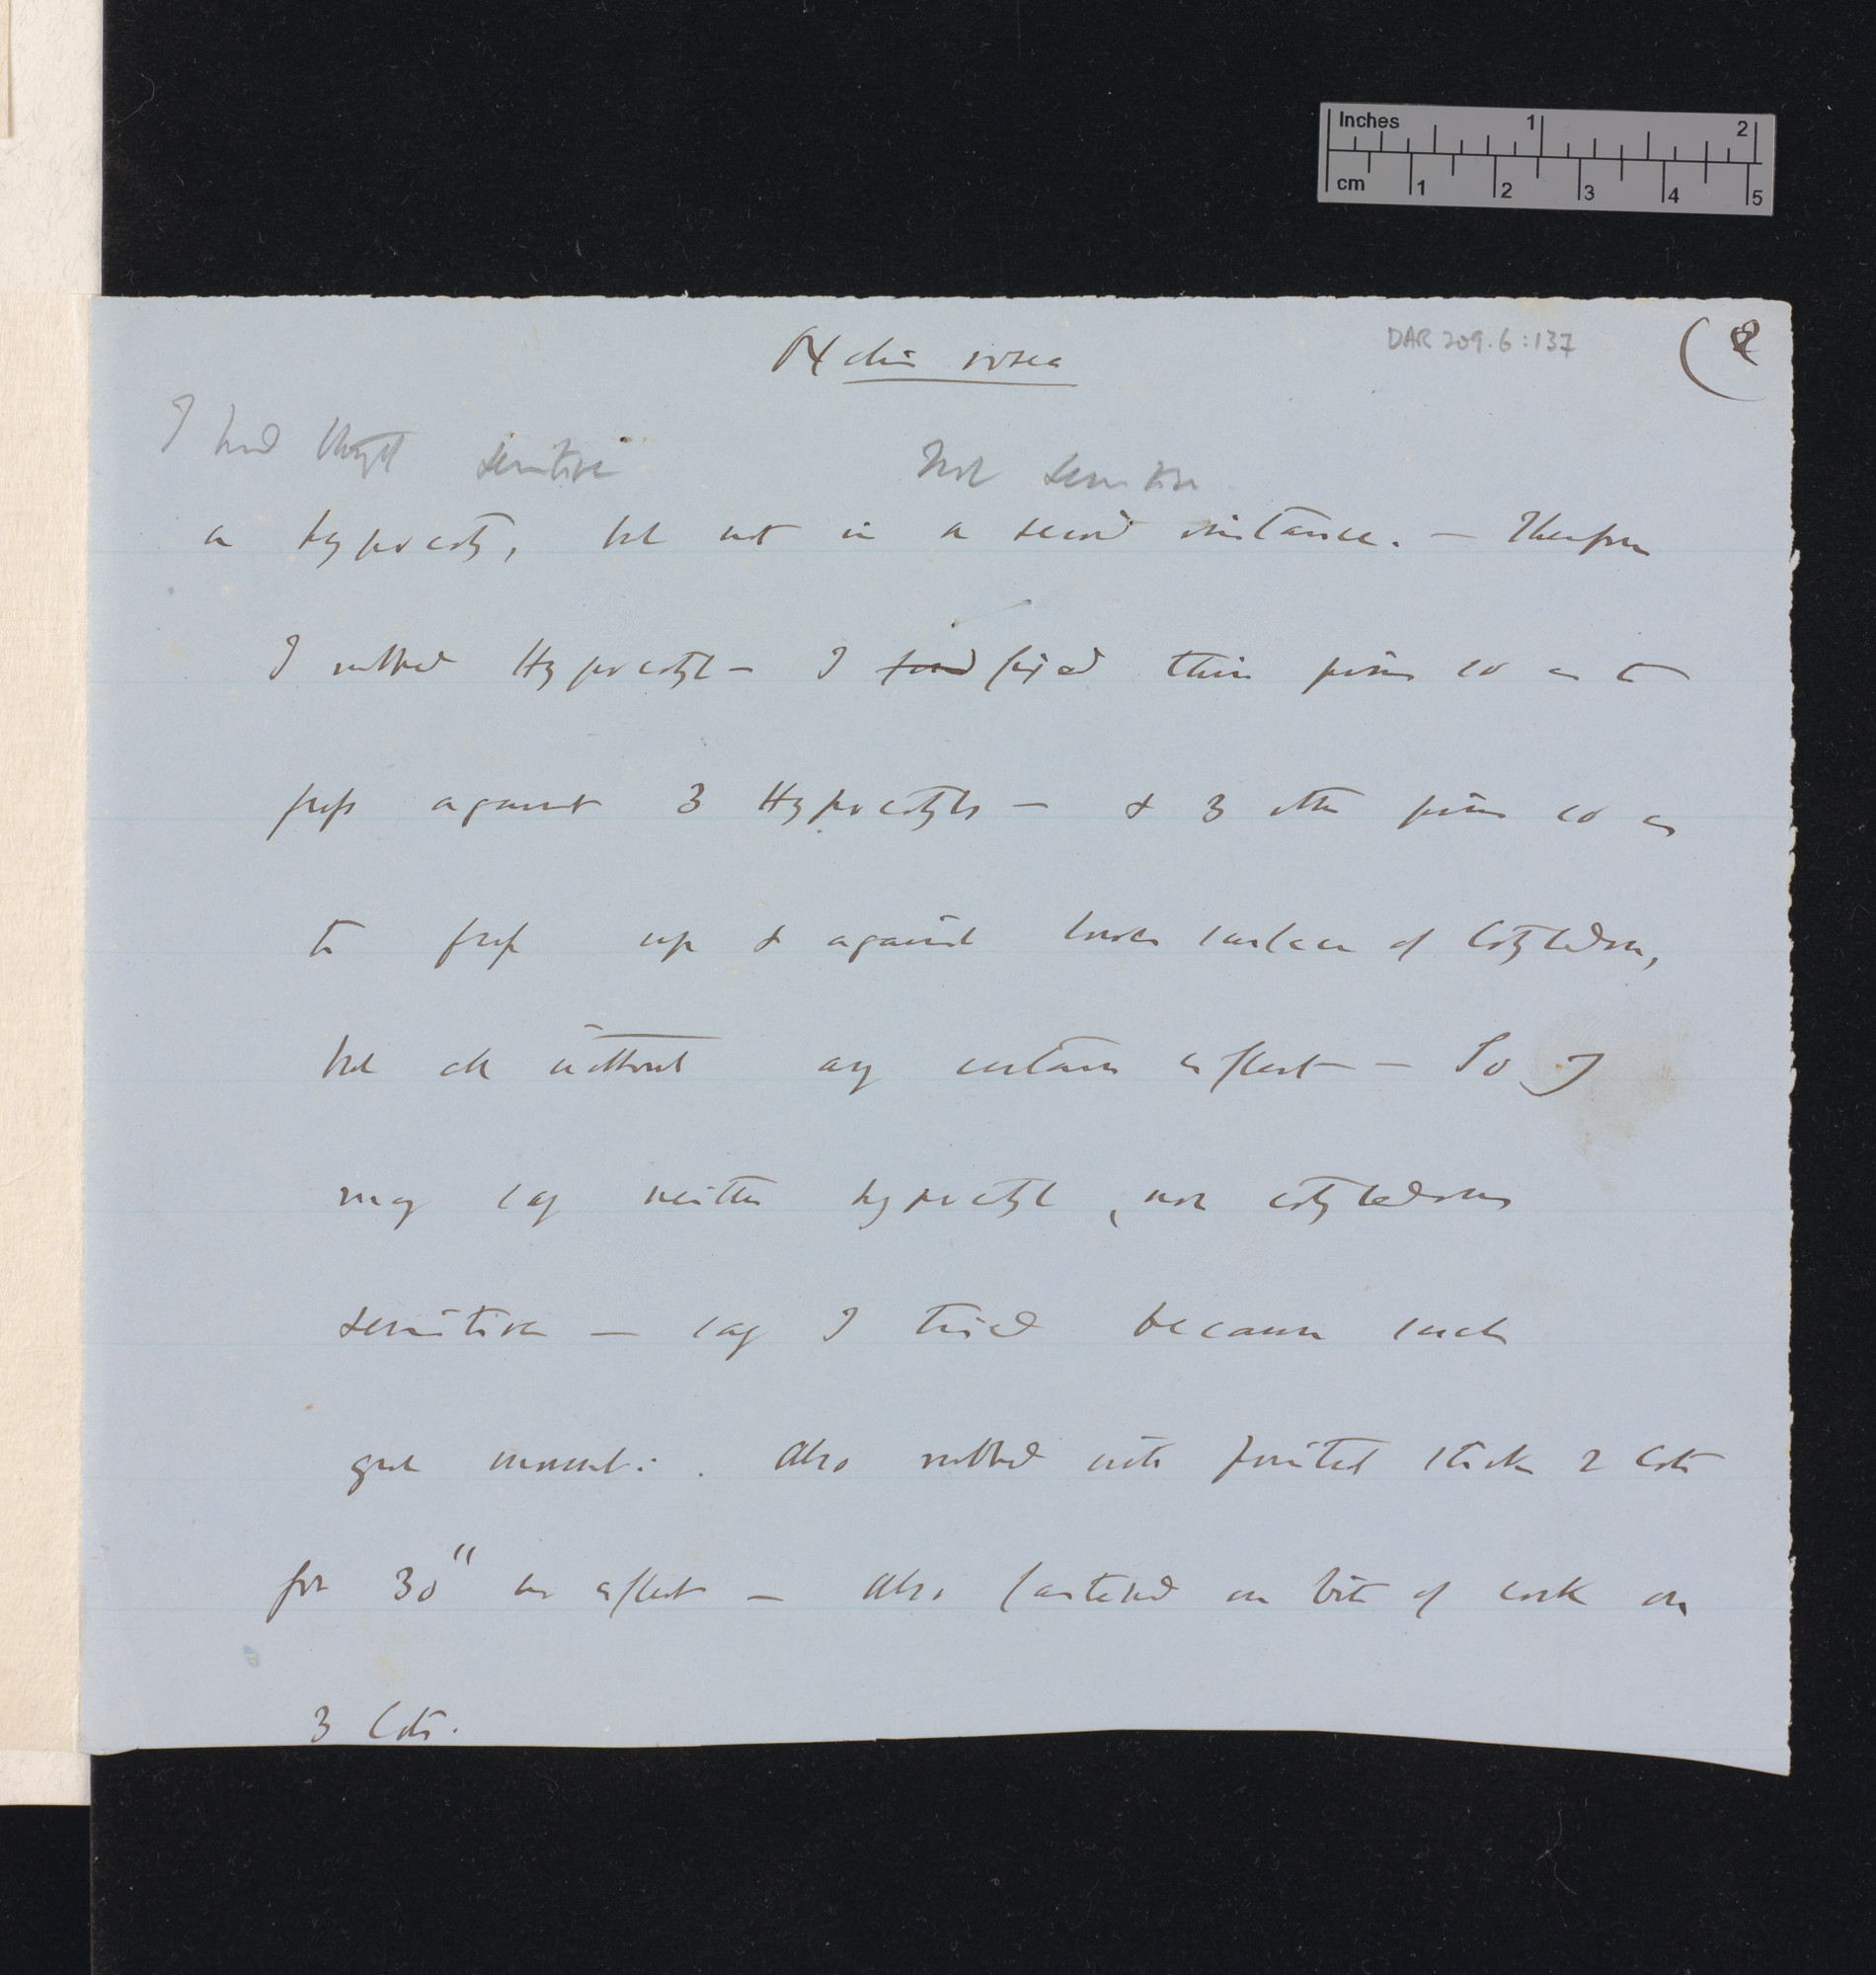 Inches 1 2
cm 1 2 3 4 5
DAR 209.6:137
(2
rosea
I had thought sensitive Not sensitive
a hypocoty, but not in a second instance. — Therefore
I rubbed Hypocotyl — I fixed thin pins so as to
press against 3 Hypocotyls — & 3 other pins so as
to press up & against lower surface of Cotyledon,
but all without any certain effect — So I
may say neither hypocotyl, nor cotyledons
sensitive — say I tried because such
great movement. Also rubbed with pointed stick 2 Cots
for 30" no effect — Also fastened on bits of cork on
3 Cots.